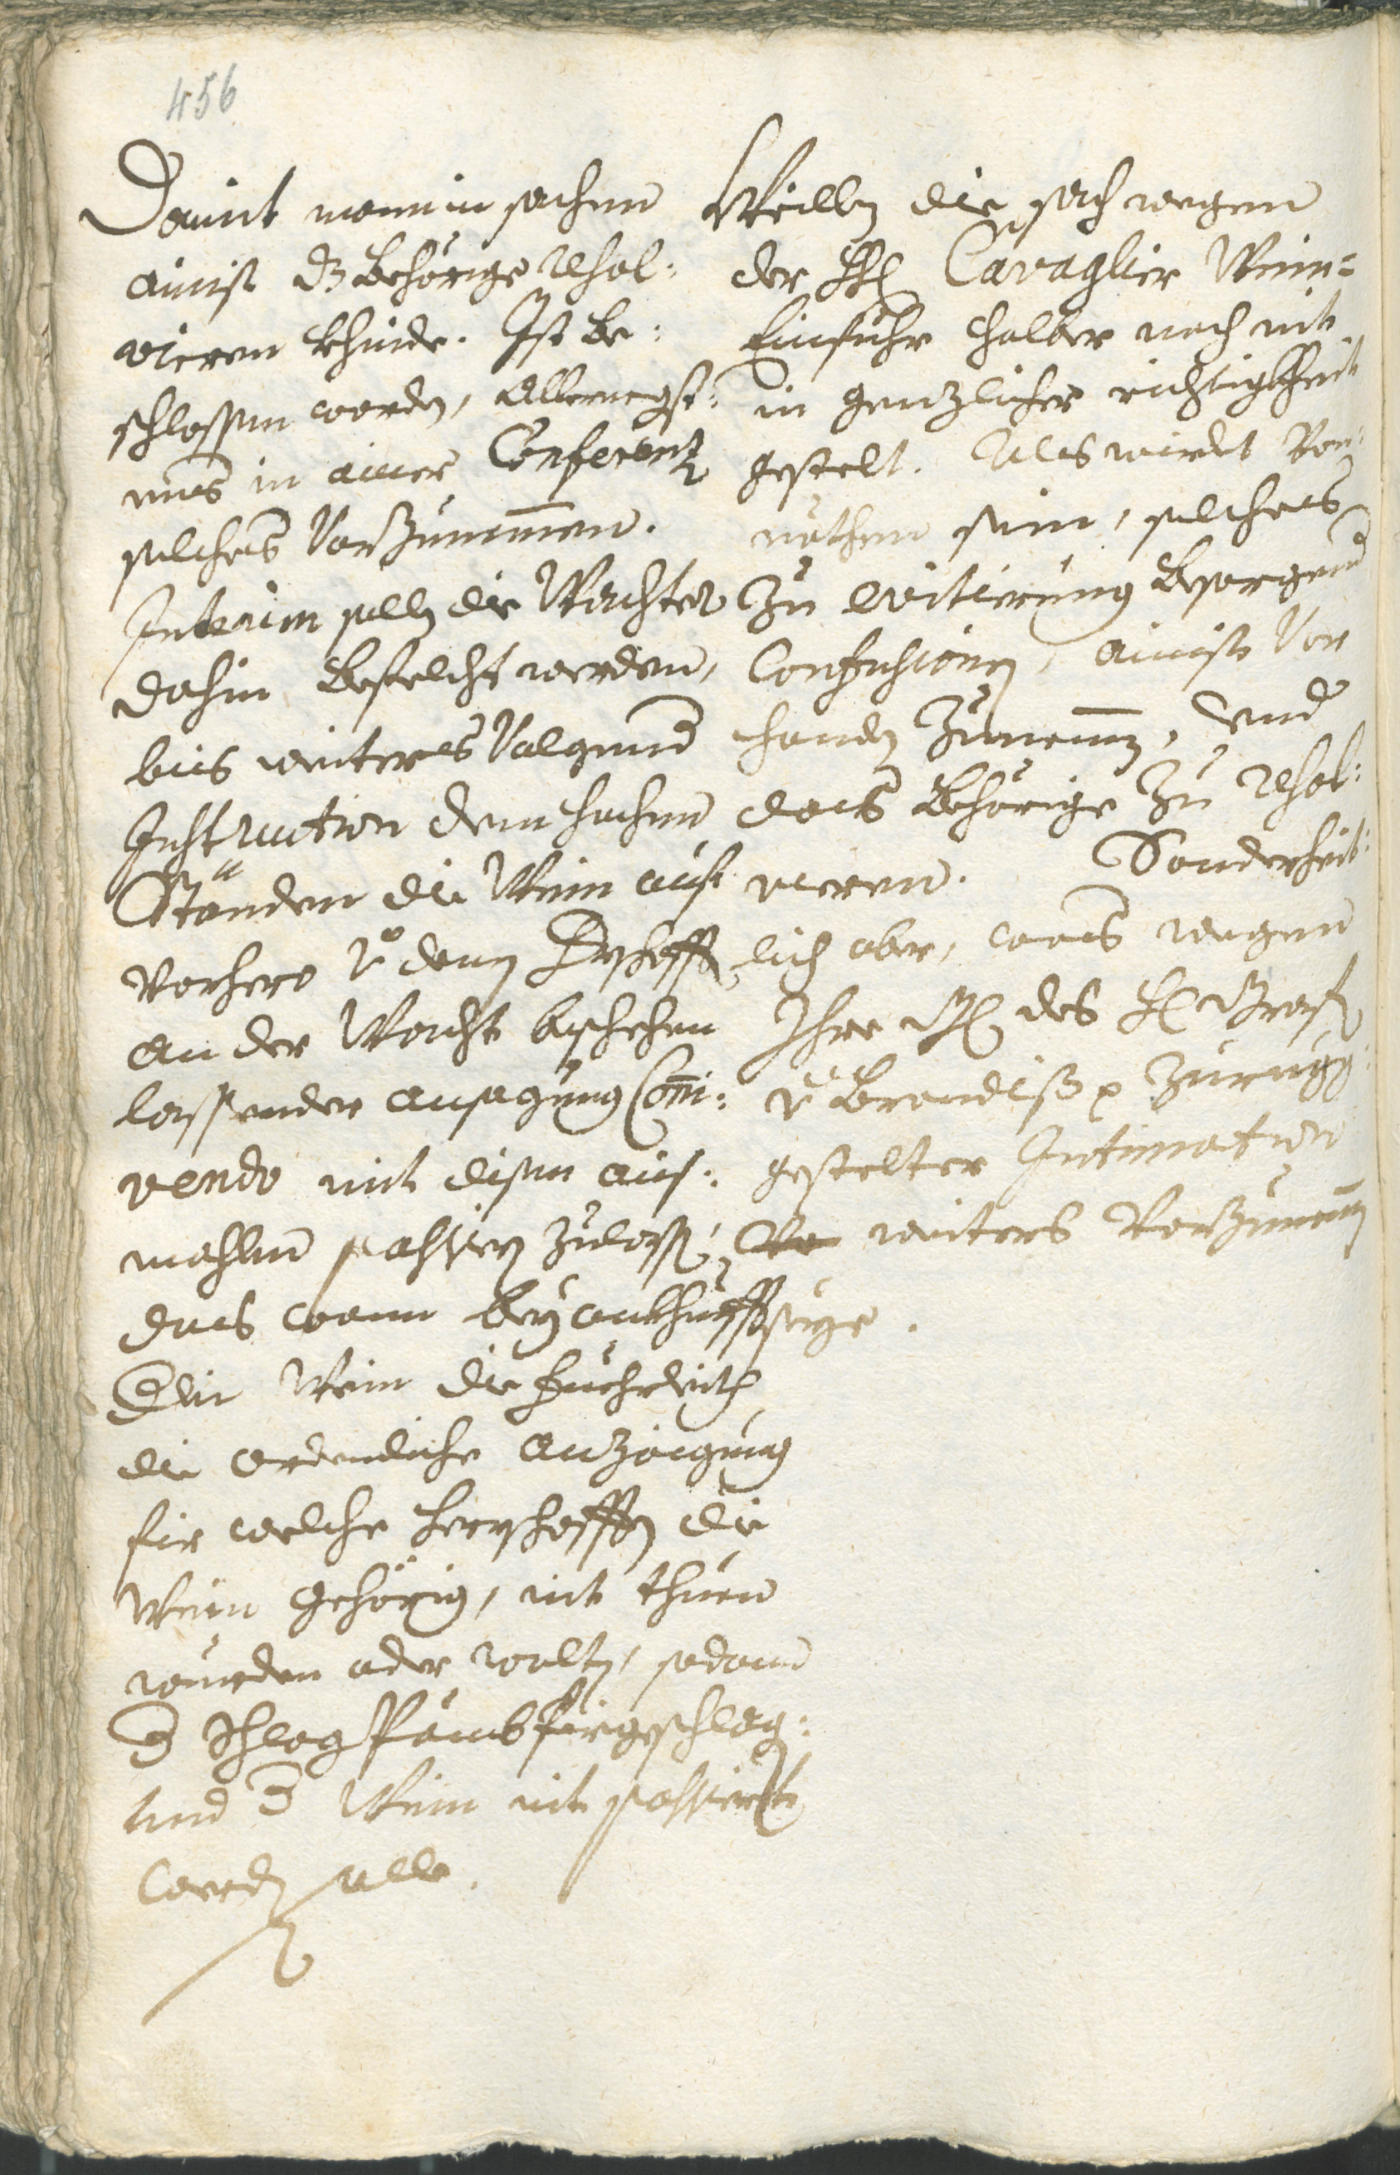 456
Damit man in sachen
ainist dz behörige resol:
vieren khinde. Ist be:
schlossen worden, allernegst:
mals in ainer Conferentz
solches vorzunemmen.
Interim solle die Wachter
dahin befelcht werden,
bis weiteres volgend
Instruction denen hochen
Ständen die Wein auf
vorhero
an der Wacht beschehen
lassender ansagung Coni:
vendo mit disen aus:
mahlen passiern zulassen,
das wann bey ankhunfft
der Wein die fuehrleith
die ordenliche anzaigung
fir welche herrschafften die
Wein gehörig, nit thuen
wurden oder wolten, sodann
der schlagpaumb firgeschlag:
und der Wein nit passiert
werden solle.
Weillen die sach wegen
der HH Cavaglier Wein=
Einfuhr halber noch nit
in genzlicher richtigkheit
gestelt. Als wirdt von:
nöthen sein, solches
zu evitierung besorgend
Confusionen, ainist vor
handen zunemmen, und
das behörige zu resol:
vieren. Sonderheit:
lich aber, was wegen
Ihro des H Graf
v Brandiß zurugg:
gestelter Intimation
weiters vorzunemen
seye.